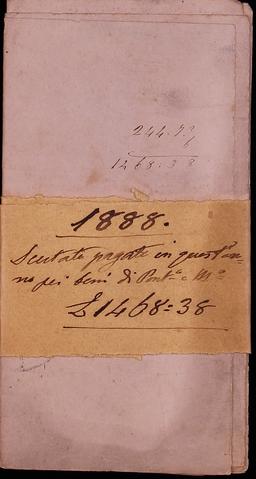 244.73
6
1468:38
1888.
Scutate pagate in quest'an=
no pei beni di Pont.ª e M.ª
£1468=38